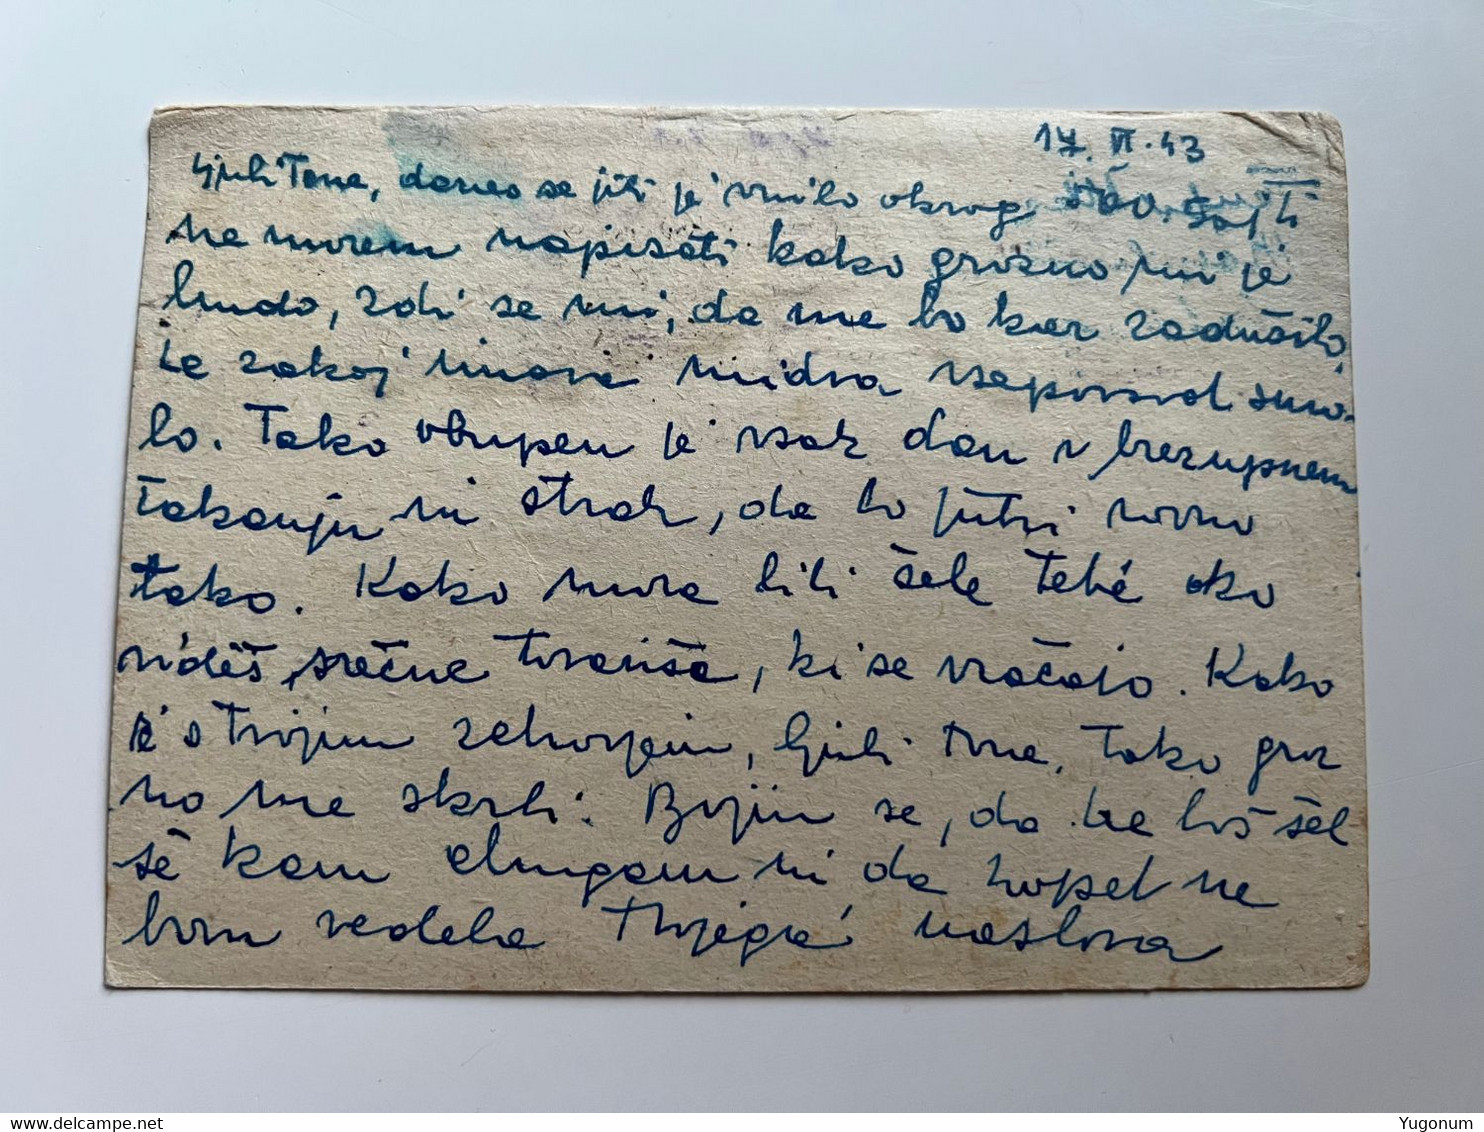 17. VI. 43
Ljubi Tone, danes se jiti je vrnilo okrog Saj ti
ne morem napisati kako grozno mi je
hudo, zdi se mi, da me bo kar zadušilo,
le zakaj imava midva vsepovsod smo-
lo. Tako obupen je vsak dan v brezupnem
čakanju in strah, da bo jutri ravno
tako. Kako mora biti šele tebi ako
vidiš srečne tovariše, ki se vračajo. Kako
je s tvojim zdravjem, ljubi Tone, tako groz
no me skrbi. Bojim se, da ne boš šel
še kam drugam in da zopet ne
bom vedela tvojega naslova
Yugonum